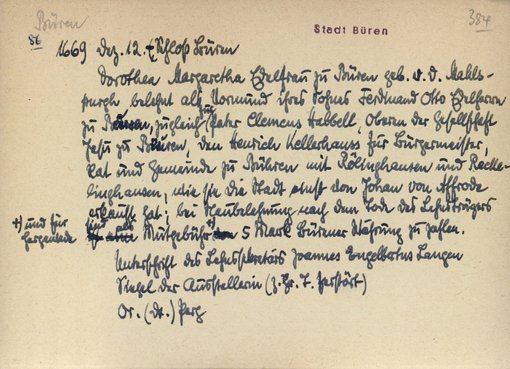 Büren
384
Stadt Büren
86
1669 Dez. 12. Schloß Büren
Dorothea Margaretha Edelfrau zu Büren geb. v. d. Mahls-
purgh belehnt als Vormund ihres Sohnes Ferdinand Otto Edelherrn
zu Büren, zugleich für Pater Clemens Habbell, Obern der Gesellschaft
Jesu zu Büren, den Henrich Kellerhauss zur Bürgermeister,
Rat und Gemeinde zu Bühren mit Rölinghausen und
linghausen, wie sie die Stadt einst von Johan von Affrode
erkauft hat; bei Neubelehnung nach dem Tode des Lehnsträgers
+) und für
Hergewede
und als Mutgebühr 5 Mark Bürener Währung zu zahlen.
Unterschrift des Lehnssekretärs Joannes Engelbertus Langen
Siegel der Ausstellerin (z. Gr. T. zerstört)
Or. (dt.) Perg